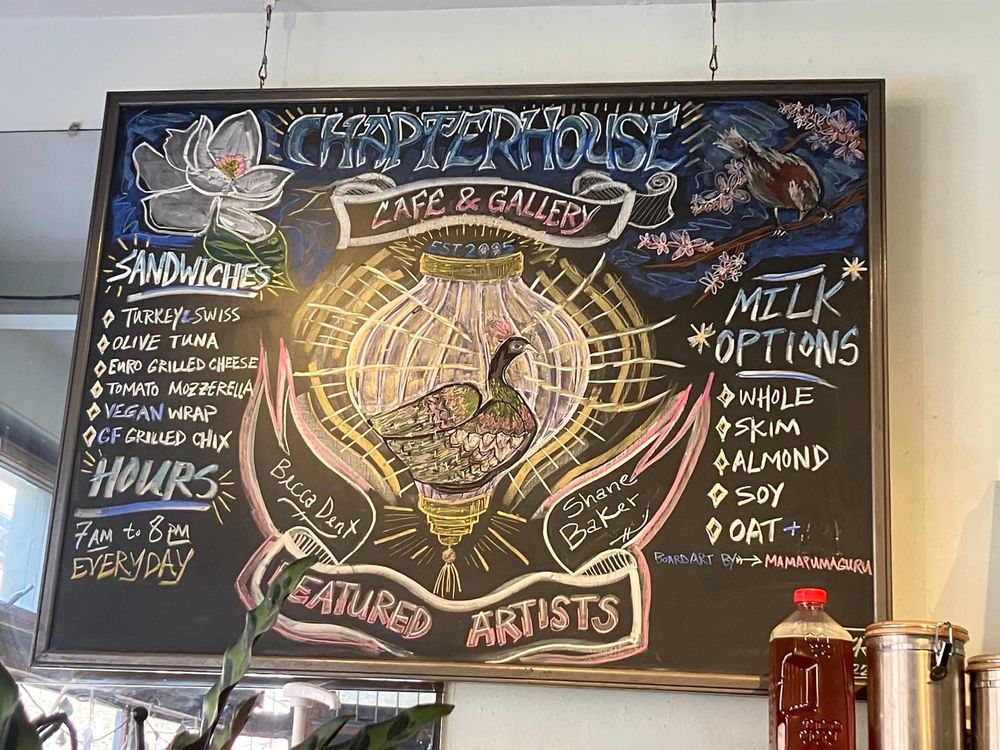 CHAPTERHOUSE
CAFE & GALLERY
EST 2005
SANDWICHES
TURKEY & SWISS
OLIVE TUNA
EURO GRILLED CHEESE
TOMATO MOZZERELLA
VEGAN WRAP
GF GRILLED CHIX
HOURS
7AM to 8PM
EVERYDAY
Becca Denx
Shane
Baker
FEATURED ARTISTS
MILK
OPTIONS
WHOLE
SKIM
ALMOND
SOY
OAT +
BOARD ART BY → MAMAPUMAGURU